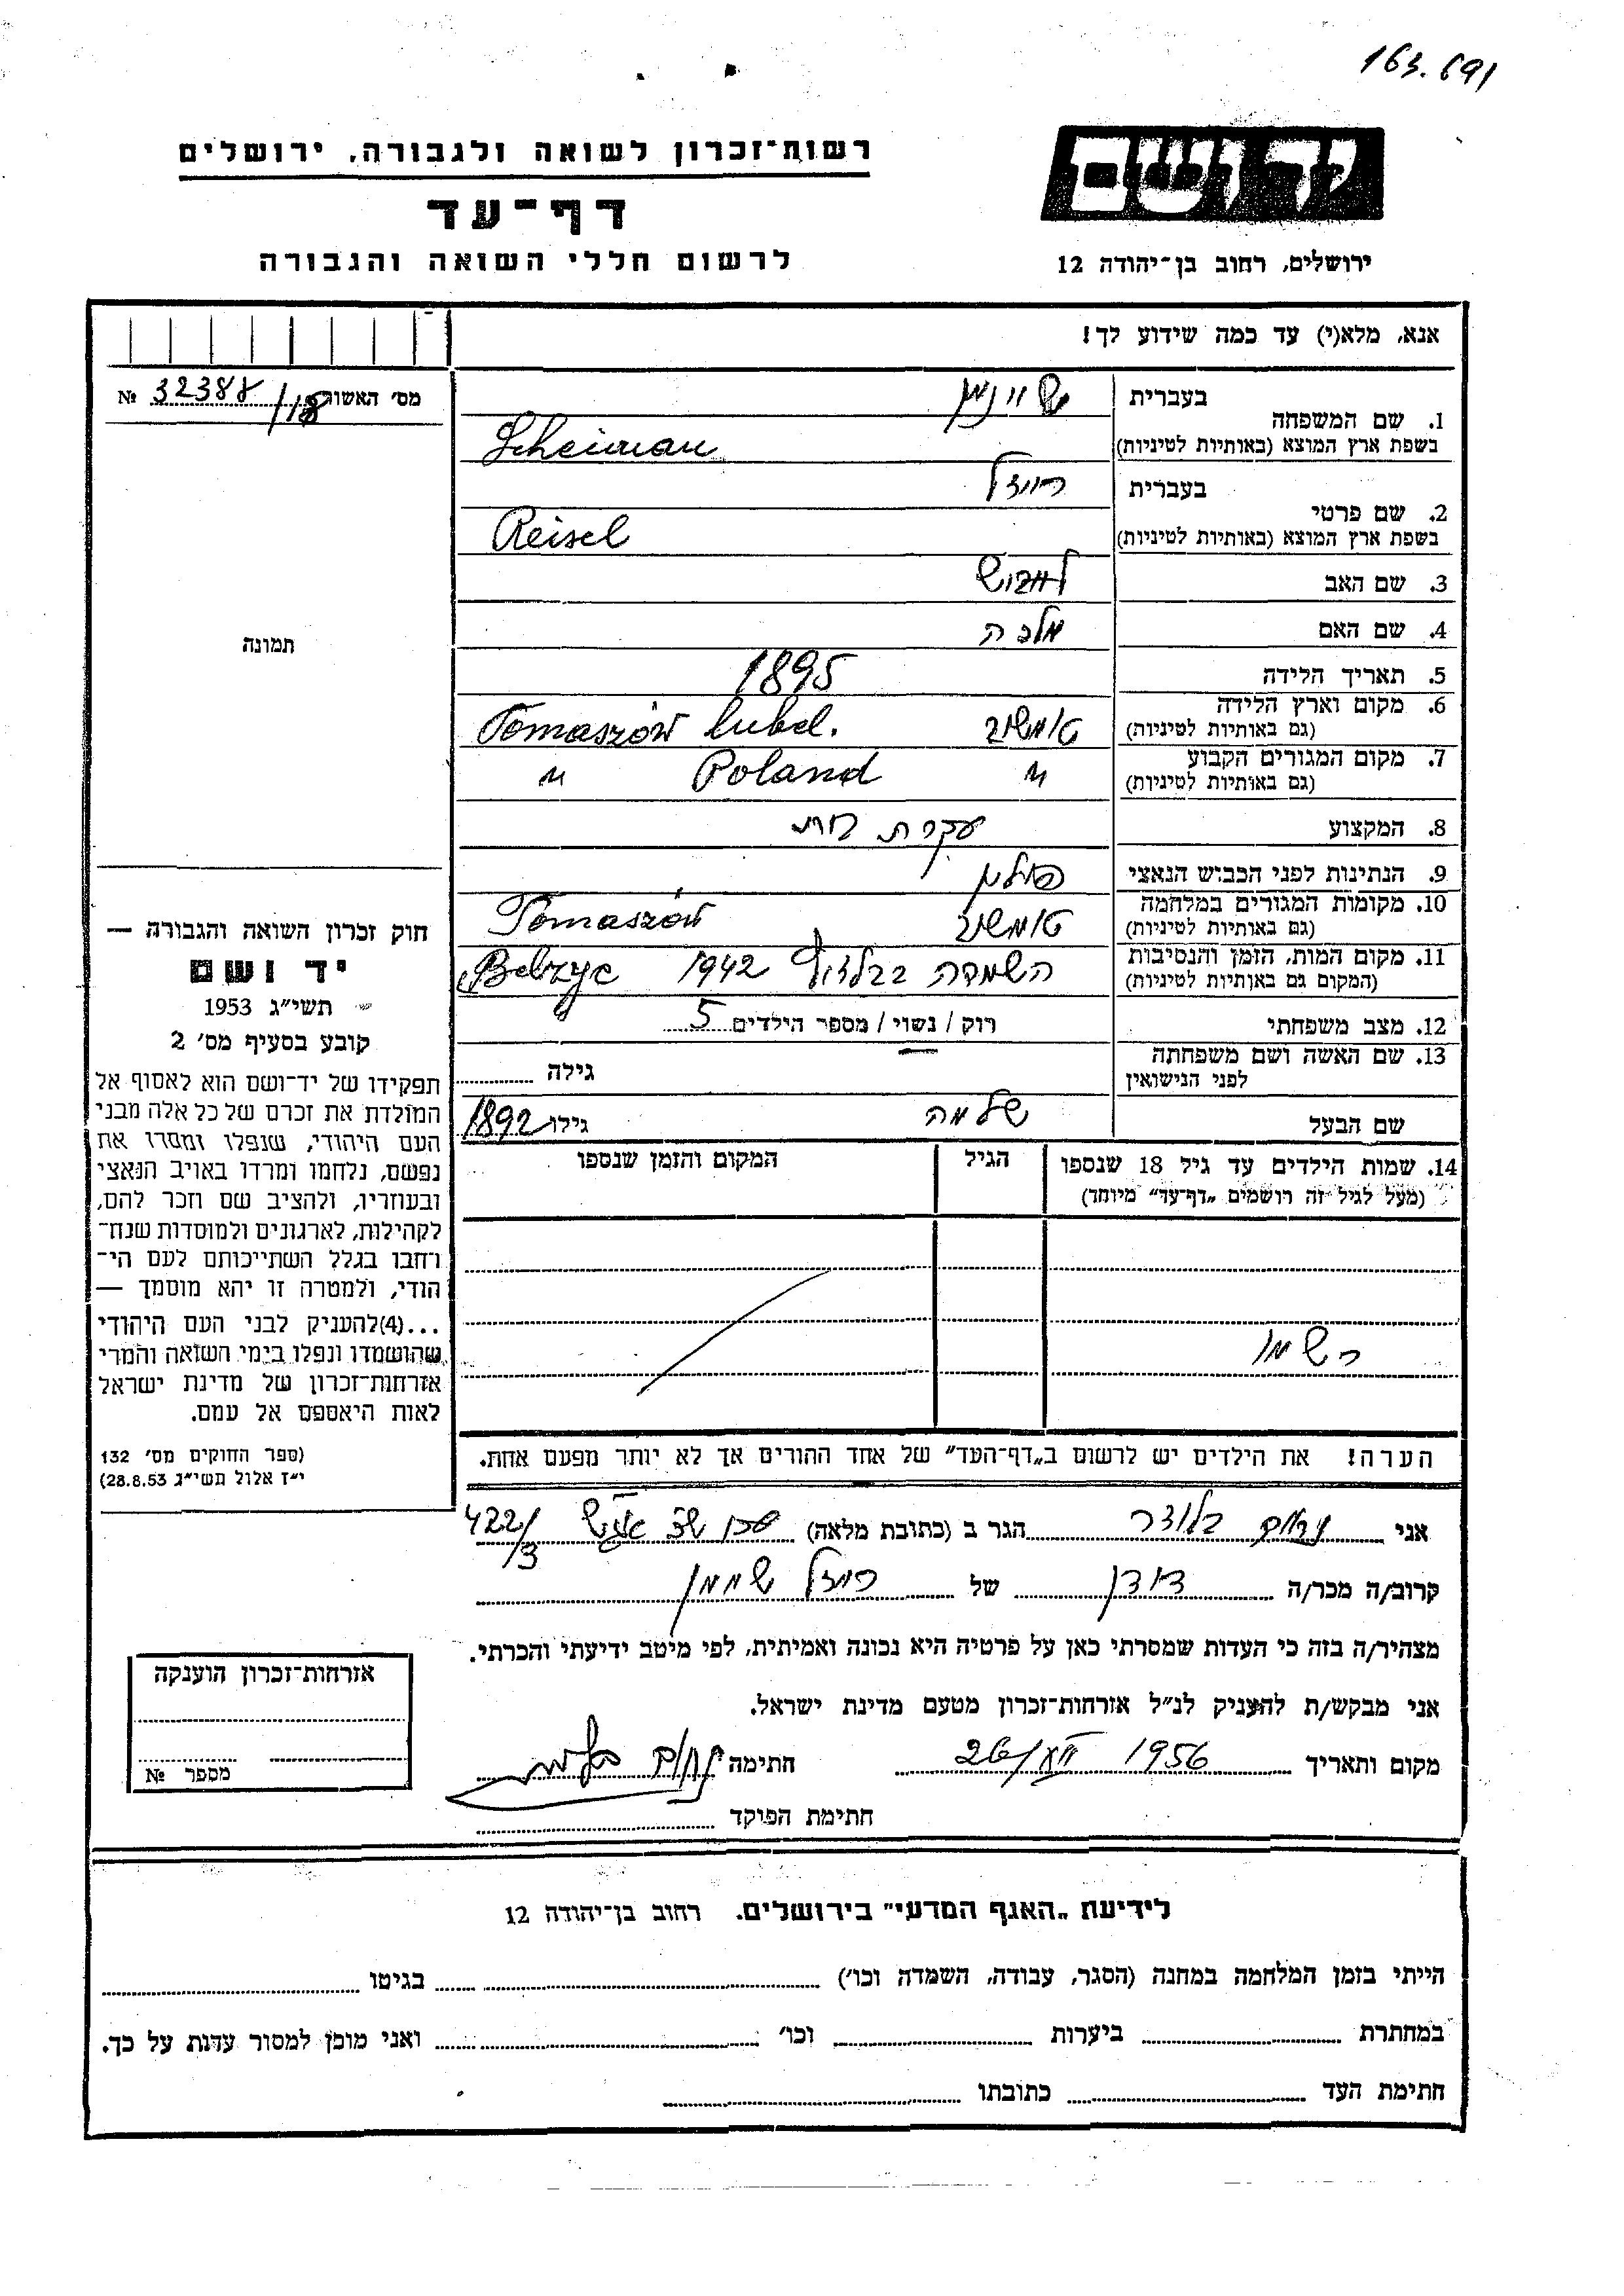 163.691
יד ושם
רשות־זכרון לשואה ולגבורה, ירושלים
דף־עד
לרשום חללי השואה והגבורה
ירושלים, רחוב בן־יהודה 12
אנא, מלא(י) עד כמה שידוע לך!
מס׳ האשור 32388/18 №
תמונה
1. שם המשפחה
בעברית שיינמן
בשפת ארץ המוצא (באותיות לטיניות) Scheinman
2. שם פרטי
בעברית רייזל
בשפת ארץ המוצא (באותיות לטיניות) Reisel
3. שם האב לייבוש
4. שם האם מלכה
5. תאריך הלידה 1895
6. מקום וארץ הלידה
(גם באותיות לטיניות) טומשוב Tomaszów lubel.
7. מקום המגורים הקבוע
(גם באותיות לטיניות) " Poland "
8. המקצוע עקרת בית
9. הנתינות לפני הכבוש הנאצי פולין
10. מקומות המגורים במלחמה
(גם באותיות לטיניות) טומשוב Tomaszów
11. מקום המות, הזמן והנסיבות
(המקום גם באותיות לטיניות) השמדה בבלזיץ 1942 Belzyc
12. מצב משפחתי רוק / נשוי / מספר הילדים 5
13. שם האשה ושם משפחתה
לפני הנישואין גילה
שם הבעל שלמה גילו 1892
14. שמות הילדים עד גיל 18 שנספו הגיל המקום והזמן שנספו
(מעל לגיל זה רושמים „דף־עד״ מיוחד)
הערה! את הילדים יש לרשום ב„דף־העד״ של אחד ההורים אך לא יותר מפעם אחת.
חוק זכרון השואה והגבורה —
יד ושם
תשי״ג 1953
קובע בסעיף מס׳ 2
תפקידו של יד־ושם הוא לאסוף אל
המולדת את זכרם של כל אלה מבני
העם היהודי, שנפלו ומסרו את
נפשם, נלחמו ומרדו באויב הנאצי
ובעוזריו, ולהציב שם וזכר להם,
לקהילות, לארגונים ולמוסדות שנח־
רחבו בגלל השתייכותם לעם הי־
הודי, ולמטרה זו יהא מוסמך —
...(4)להעניק לבני העם היהודי
שהושמדו ונפלו בימי השואה והמרי
אזרחות־זכרון של מדינת ישראל
לאות היאספם אל עמם.
(ספר החוקים מס׳ 132
י״ז אלול תשי״ג 28.8.53)
אני נחום הגר ב (כתובת מלאה) 422/3
קרוב/ה מכר/ה דודן של רייזל שיינמן
מצהיר/ה בזה כי העדות שמסרתי כאן על פרטיה היא נכונה ואמיתית, לפי מיטב ידיעתי והכרתי.
אני מבקש/ת להעניק לנ״ל אזרחות־זכרון מטעם מדינת ישראל.
מקום ותאריך 26/XII 1956 חתימה נחום
חתימת הפוקד
אזרחות־זכרון הוענקה
מספר №
לידיעת „האגף המדעי״ בירושלים. רחוב בן־יהודה 12
הייתי בזמן המלחמה במחנה (הסגר, עבודה, השמדה וכו׳) בגיטו
במחתרת ביערות וכו׳ ואני מוכן למסור עדות על כך.
חתימת העד כתובתו